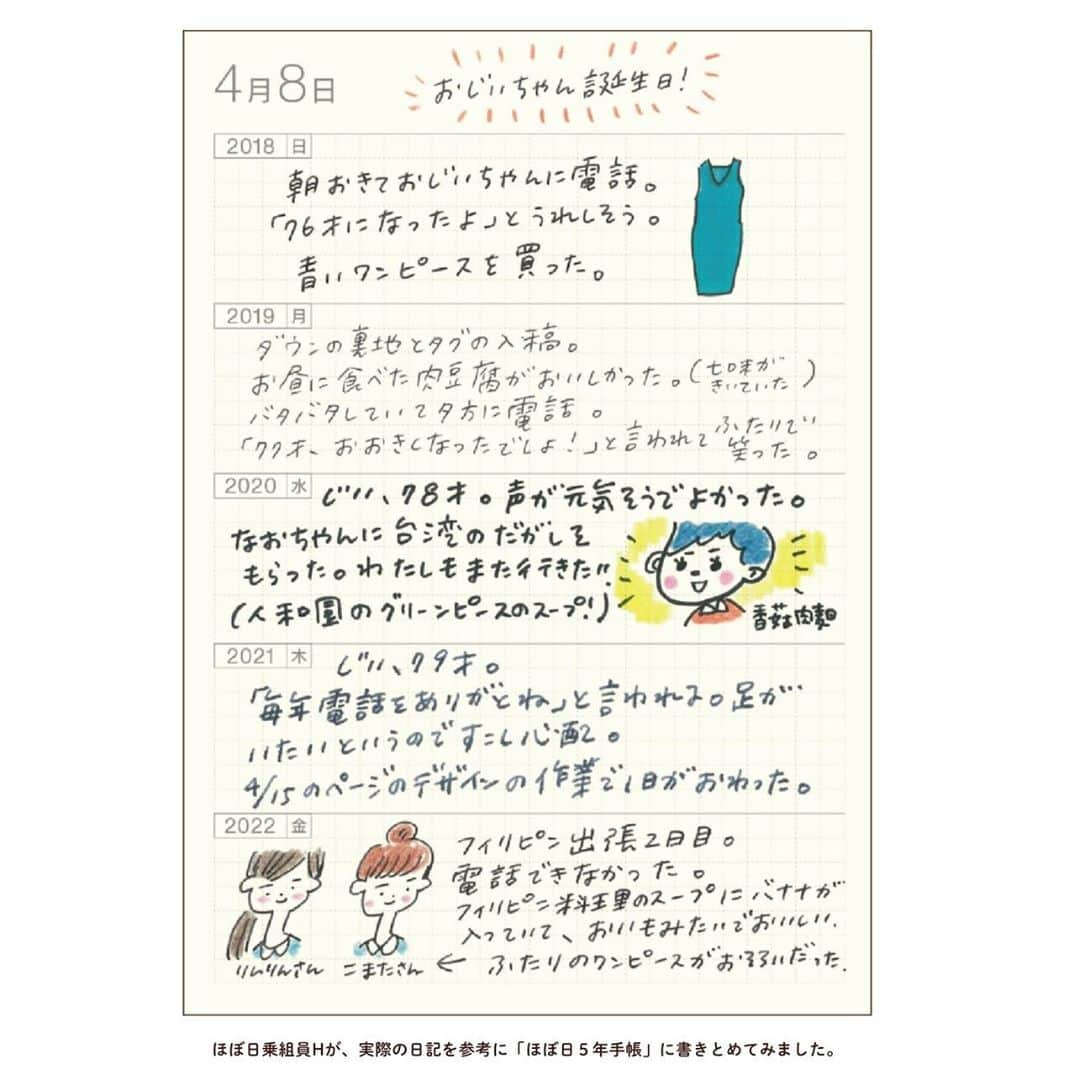 4月8日
おじいちゃん誕生日!
2018 日
朝おきておじいちゃんに電話。
「76才になったよ」とうれしそう。
青いワンピースを買った。
2019 月
ダウンの裏地とタグの入稿。
お昼に食べた肉豆腐がおいしかった。(七味がきいていた)
バタバタしていて夕方に電話。
「77才、おおきくなったでしょ!」と言われてふたりで笑った。
2020 水
じいじ、78才。声が元気そうでよかった。
なおちゃんに台湾のだがしを
もらった。わたしもまた行きた!!
(人和園のグリーンピースのスープ!)
香菇肉麺
2021 木
じいじ、79才。
「毎年電話をありがとね」と言われる。足が
いたいというのですこし心配。
4/15のページのデザインの作業で1日がおわった。
2022 金
フィリピン出張2日目。
電話できなかった。
フィリピン料理のスープにバナナが
入っていて、おいもみたいでおいしい。
りんりんさん
こまたさん
← ふたりのワンピースがおそろいだった。
ほぼ日乗組員Hが、実際の日記を参考に「ほぼ日5年手帳」に書きとめてみました。